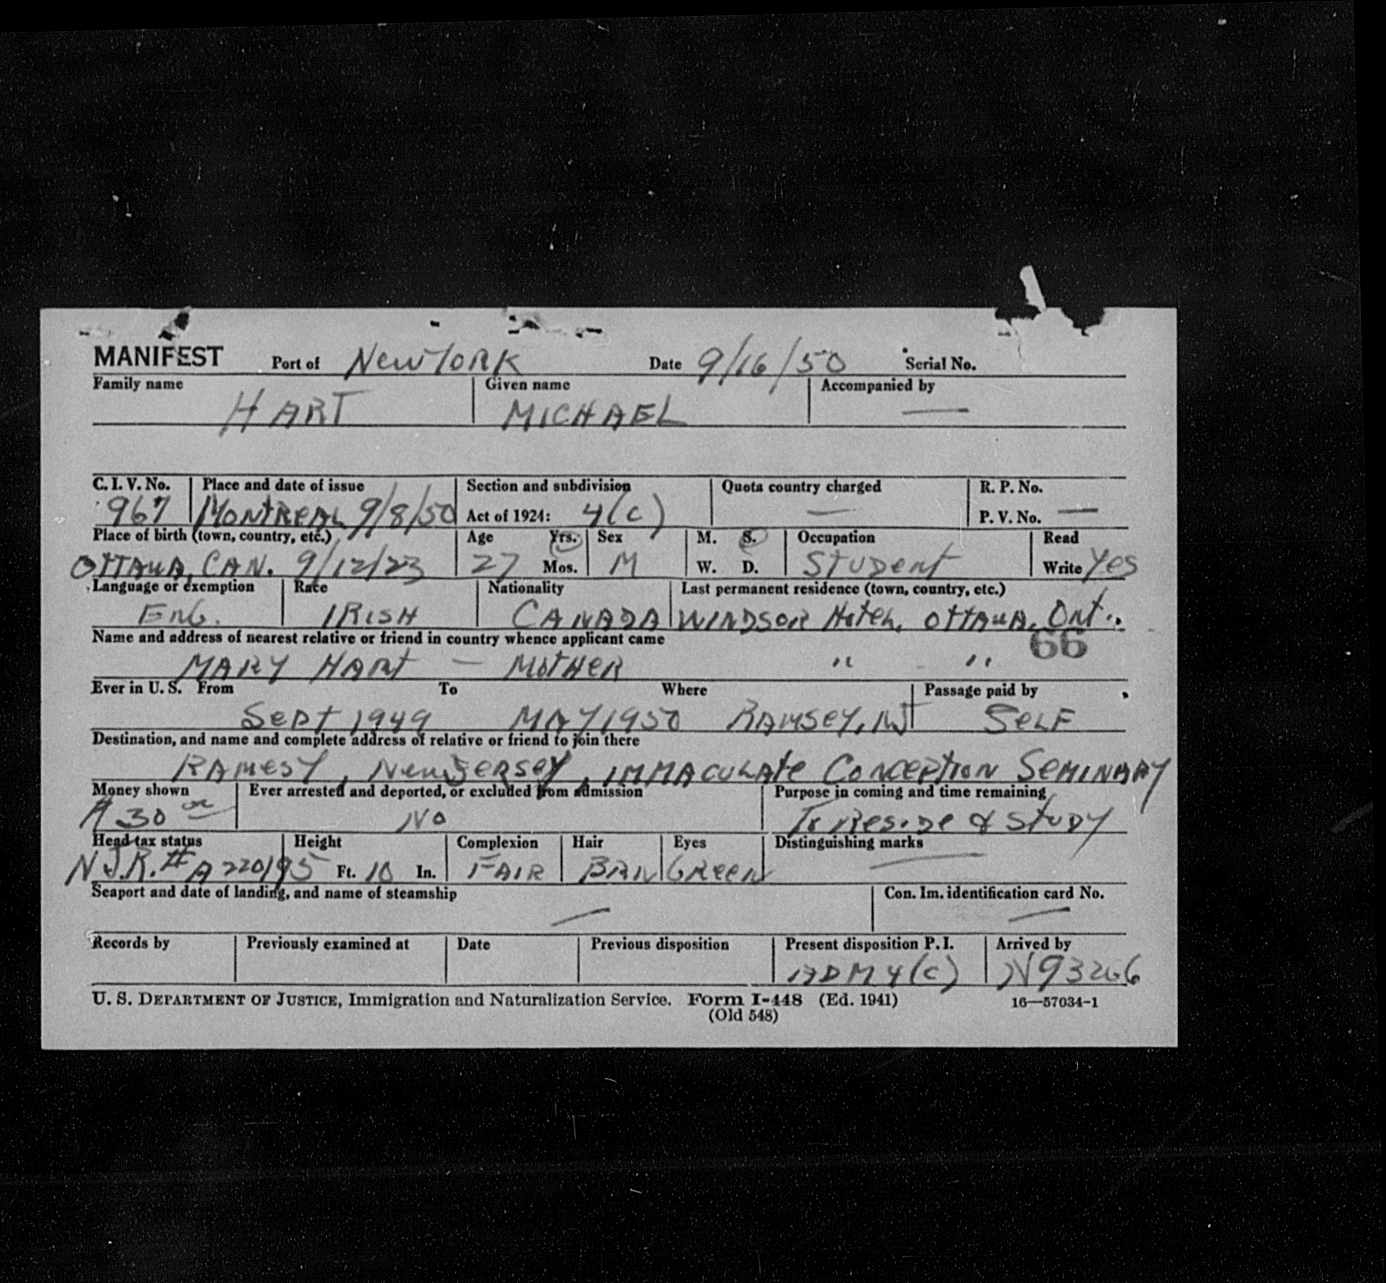 MANIFEST Port of New York Date 9/16/50 Serial No.
Family name Given name Accompanied by
HART MICHAEL —
C. I. V. No. Place and date of issue Section and subdivision Quota country charged R. P. No.
967 Montreal 9/8/50 Act of 1924: 4(c) — P. V. No. —
Place of birth (town, country, etc.) Age Yrs. Sex M. S. Occupation Read
Ottawa, Can. 9/12/23 27 Mos. M W. D. Student Write Yes
Language or exemption Race Nationality Last permanent residence (town, country, etc.)
Eng. Irish Canada Windsor Hotel, Ottawa, Ont.
Name and address of nearest relative or friend in country whence applicant came 66
Mary Hart — Mother " "
Ever in U. S. From To Where Passage paid by
Sept 1949 May 1950 Ramsey, NJ Self
Destination, and name and complete address of relative or friend to join there
Ramesy, New Jersey, Immaculate Conception Seminary
Money shown Ever arrested and deported, or excluded from admission Purpose in coming and time remaining
$30 00 No To Reside & Study
Head-tax status Height Complexion Hair Eyes Distinguishing marks
N.J.R. # A220195 5 Ft. 10 In. Fair Brn Green —
Seaport and date of landing, and name of steamship Con. Im. identification card No.
— —
Records by Previously examined at Date Previous disposition Present disposition P. I. Arrived by
ADM 4(c) N93266
U. S. Department of Justice, Immigration and Naturalization Service. Form I-448 (Ed. 1941) 16—57034-1
(Old 548)